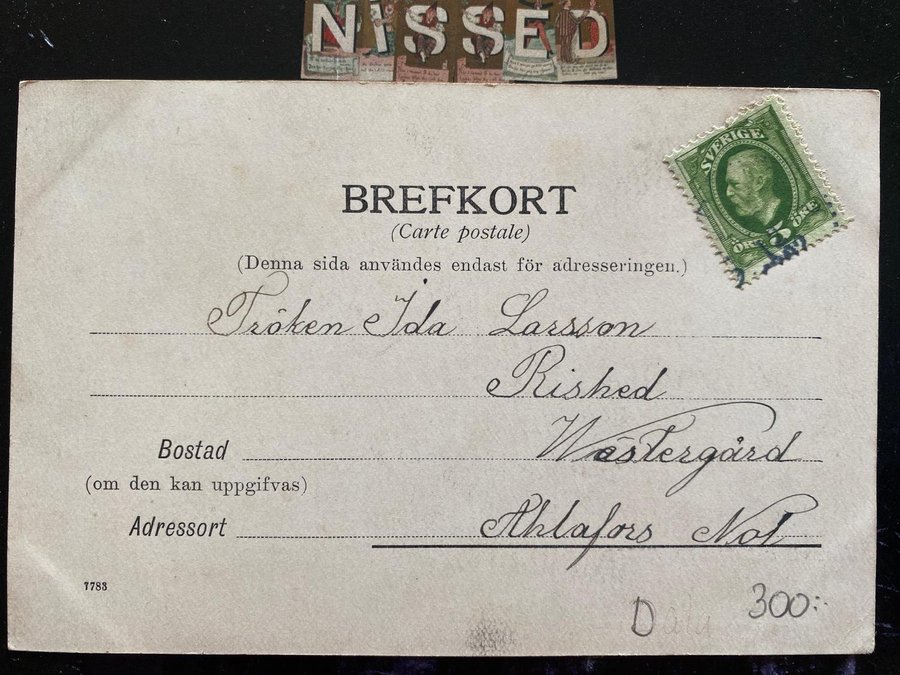 NISSED
SVERIGE
5
ÖRE ÖRE
BREFKORT
(Carte postale)
(Denna sida användes endast för adresseringen.)
Fröken Ida Larsson
Rished
Wästergård
Bostad
(om den kan uppgifvas)
Adressort
Ahlafors Nol
7783
D
300:-